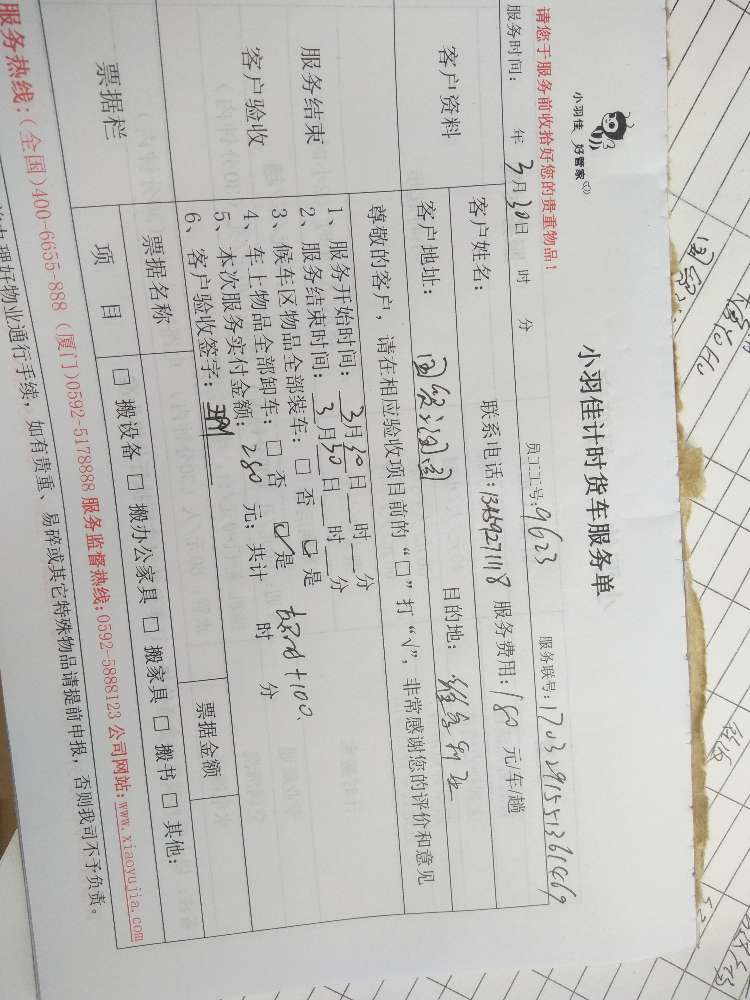 小羽佳 好管家
小羽佳计时货车服务单
请您于服务前收拾好您的贵重物品！
员工工号：9623
服务联号：1703291551361469
服务时间： 年 3月30日 时 分
客户资料
客户姓名： 联系电话：13459271118 服务费用：180 元/车/趟
客户地址： 目的地：
服务结束
客户验收
尊敬的客户，请在相应验收项目前的“□”打“√”，非常感谢您的评价和意见
1、服务开始时间：3月30日 时 分
2、服务结束时间：3月30日 时 分
3、候车区物品全部装车：□ 否 ☑ 是
4、车上物品全部卸车：□ 否 ☑ 是
5、本次服务实付金额：280 元；共计 时 分
+100
6、客户验收签字：
票据栏
票据名称 票据金额
项 目
□ 搬设备 □ 搬办公家具 □ 搬家具 □ 搬书 □ 其他：
服务热线：(全国)400-6655-888 (厦门)0592-5178888 服务监督热线：0592-5888123 公司网站：www.xiaoyujia.com
办理好物业通行手续，如有贵重、易碎或其它特殊物品请提前申报，否则我司不予负责。